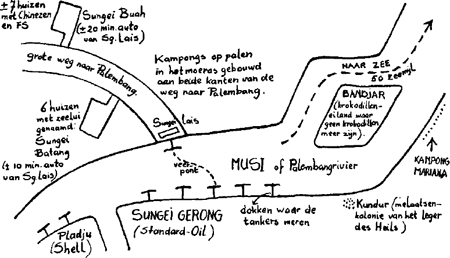 ± 7 huizen
met Chinezen
en FS
Sungei Buah
(± 20 min. auto
van Sg. Lais)
grote weg naar Palembang.
Kampongs op palen
in het moeras gebouwd
aan beide kanten van de
weg naar Palembang.
6 huizen
met zeelui
genaamd:
Sungei
Batang
(± 10 min. auto
van Sg. lais)
Sungei lais
veer
pont
NAAR ZEE
50 zeemijl
BANDJAR
(krokodillen-
eiland waar
geen krokodillen
meer zijn).
MUSI of Palembangrivier
KAMPONG
MARIANA
Pladju
(Shell)
SUNGEI GERONG
(Standard-Oil)
dokken waar de
tankers meren
Kundur (melaatsen-
kolonie van het leger
des Heils)